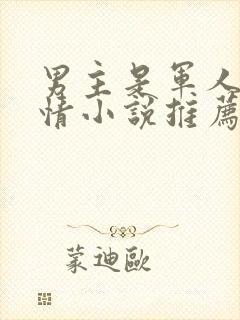 男主是軍人
情小說推薦
蒙迪歐